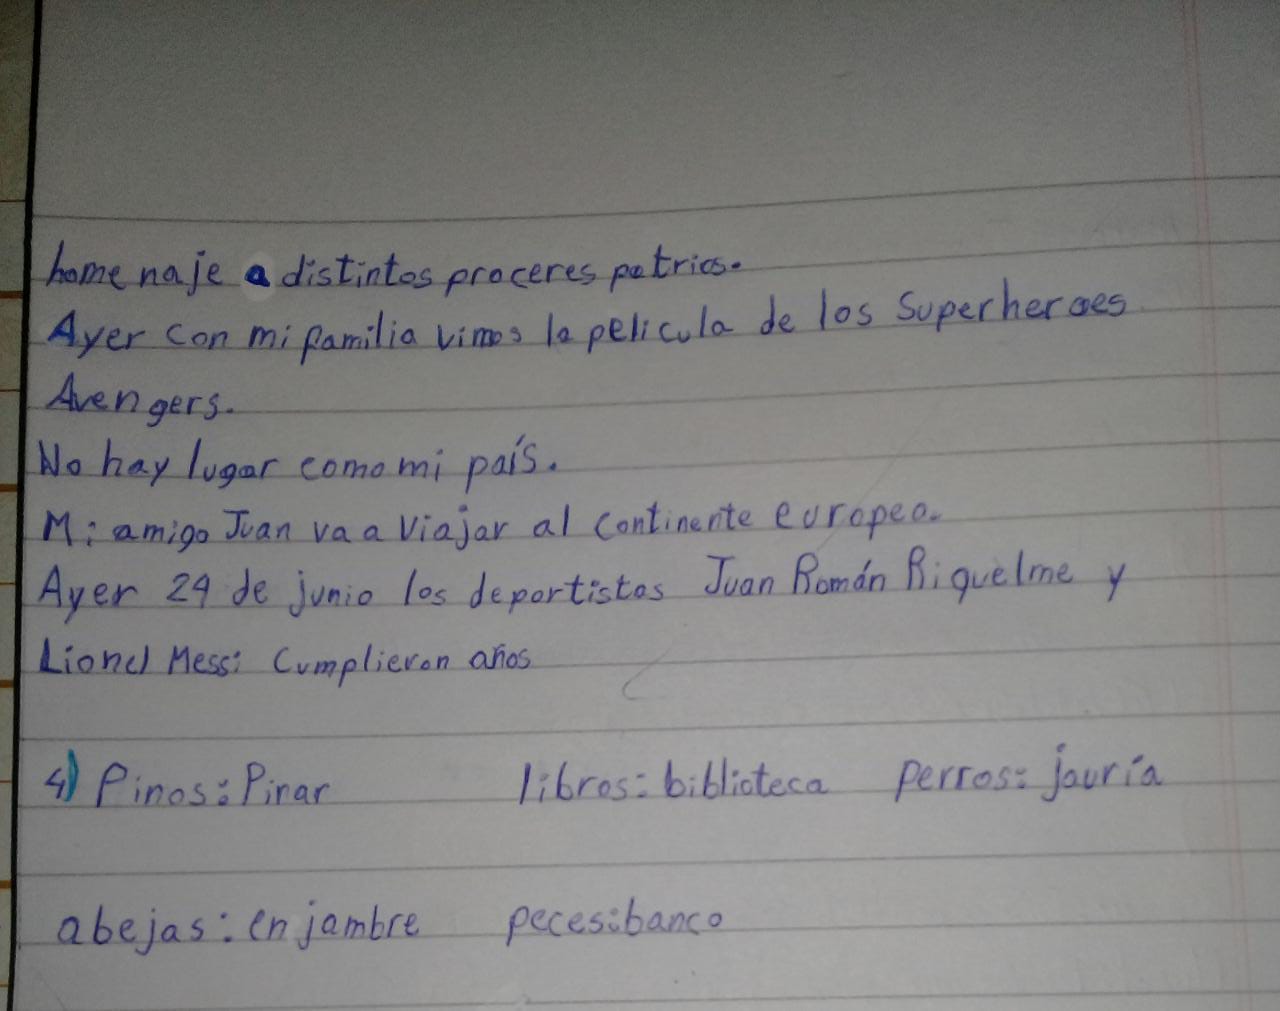 homenaje a distintos proceres patrios.
Ayer con mi familia vimos la pelicula de los Superheroes
Avengers.
No hay lugar como mi país.
Mi amigo Juan va a Viajar al Continente europeo.
Ayer 24 de junio los deportistas Juan Román Riquelme y
Lionel Messi Cumplieron años
4) Pinos: Pinar libros: biblioteca perros: jauría
abejas: enjambre peces: banco